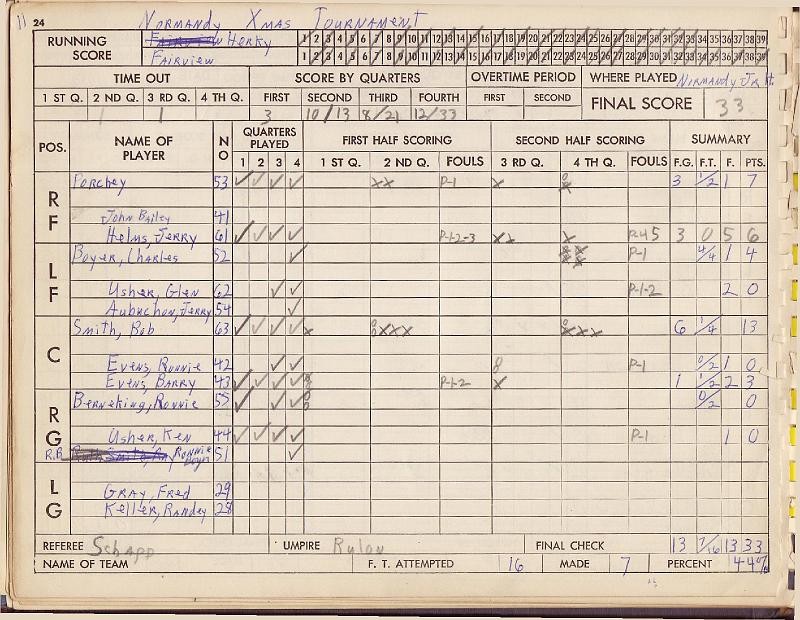 11 24 Normandy Xmas Tournament
RUNNING SCORE
Fairview Herky 1 2 3 4 5 6 7 8 9 10 11 12 13 14 15 16 17 18 19 20 21 22 23 24 25 26 27 28 29 30 31 32 33 34 35 36 37 38 39
Fairview 1 2 3 4 5 6 7 8 9 10 11 12 13 14 15 16 17 18 19 20 21 22 23 24 25 26 27 28 29 30 31 32 33 34 35 36 37 38 39
TIME OUT SCORE BY QUARTERS OVERTIME PERIOD WHERE PLAYED Normandy Jr H.
1 ST Q. 2 ND Q. 3 RD Q. 4 TH Q. FIRST SECOND THIRD FOURTH FIRST SECOND FINAL SCORE 33
1 1 3 10/13 8/21 12/33
POS. NAME OF PLAYER NO QUARTERS PLAYED FIRST HALF SCORING SECOND HALF SCORING SUMMARY
1 2 3 4 1 ST Q. 2 ND Q. FOULS 3 RD Q. 4 TH Q. FOULS F.G. F.T. F. PTS.
RF Porchey 53 ✓ ✓ ✓ ✓ xx P-1 x x 3 1/2 1 7
John Bailey 41
Helms, Jerry 61 ✓ ✓ ✓ ✓ P-1-2-3 xx x P-4 5 3 0 5 6
LF Boyer, Charles 52 ✓ P-1 4/4 1 4
Usher, Glen 62 ✓ ✓ P-1-2 2 0
Aubuchon, Jerry 54 ✓
C Smith, Bob 63 ✓ ✓ ✓ ✓ x xxx xxx 6 1/4 13
Evens, Ronnie 42 ✓ ✓ 8 P-1 0/2 1 0
Evens, Barry 43 ✓ ✓ ✓ ✓ P-1-2 x 1 1/2 2 3
RG Berneking, Ronnie 55 ✓ ✓ ✓ 0/2 0
Usher, Ken 44 ✓ ✓ ✓ ✓ P-1 1 0
R.B. Ronnie 51 ✓
LG Gray, Fred 29
Keller, Randey 28
REFEREE Schapp UMPIRE Rulon FINAL CHECK 13 7/16 13 33
NAME OF TEAM F. T. ATTEMPTED 16 MADE 7 PERCENT 44%